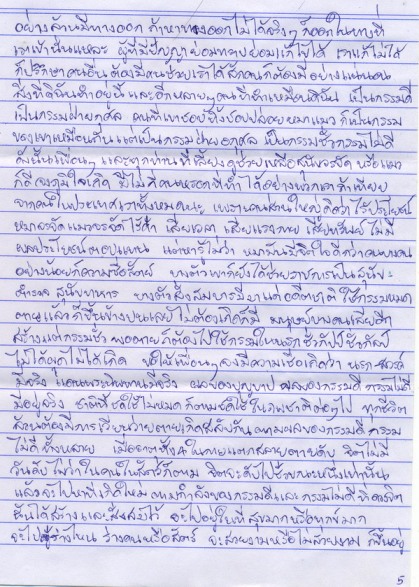 อย่างล้านมีทางออก ถ้าหาทางออกไม่ได้จริงๆ ก็ออกในทางที่
เราเข้านั่นแหละ ผู้ที่มีปัญญาย่อมทราบย่อมแก้ไขได้ เราแก้ไม่ได้
ก็ปรึกษาคนอื่น ต้องมีคนช่วยเราได้สักคนก็ต้องมีอย่างแน่นอน
สิ่งที่ดิฉันทำอยู่นี้ และอีกหลายๆ คนที่ทำเหมือนดิฉัน เป็นกรรมดี
เป็นกรรมฝ่ายกุศล คนที่เขาชอบทิ้งชอบปล่อยหมาแมว ก็เป็นกรรม
ของเขาเหมือนกัน แต่เป็นกรรมฝ่ายอกุศล เป็นกรรมชั่วกรรมไม่ดี
ดังนั้นเพื่อนๆ และทุกท่านที่เลี้ยงดูช่วยเหลือสุนัขจรจัด หรือแมว
ก็ดี จงภูมิใจเถิด มีไม่กี่คนหรอกที่ทำได้อย่างพวกเรา ถ้าเทียบ
จากคนในประเทศเราทั้งหมดนะ เพราะคนส่วนใหญ่คิดว่าไร้ประโยชน์
หมาจรจัดแมวจรจัดไร้ค่า เสียเวลา เสียแรงกาย เสียทรัพย์ ไม่มี
ผลประโยชน์ตอบแทน แต่หารู้ไม่ว่า หมามันมีจิตใจดีกว่าคนบางคน
อย่างน้อยก็ความซื่อสัตย์ บางตัวเขาก็ยังได้ช่วยราชการเป็นสุนัข
ตำรวจ สุนัขทหาร บางตัวสั่งสมบารมีมาแต่อดีตชาติ ใช้กรรมหมด
ตายแล้วก็ขึ้นข้างบนเลยไม่ต้องมาเกิดก็มี มนุษย์บางคนเสียอีก
สร้างแต่กรรมชั่ว พอตายก็ต้องไปใช้กรรมในนรกชั่วกัปชั่วกัลป์
ไม่ได้ผุดไม่ได้เกิด ขอให้เพื่อนๆ จงมีความเชื่อเถิดว่า นรก สวรรค์
มีจริง แดนพระนิพพานมีจริง ผลของบุญบาป ผลของกรรมดี กรรมไม่ดี
มีอยู่จริง ชาตินี้ชดใช้ไม่หมด ก็ตามชดใช้ในภพชาติต่อๆ ไป ทุกชีวิต
ล้วนต้องมีการเวียนว่ายตายเกิดสลับกัน ตามผลของกรรมดี กรรม
ไม่ดีทั้งหลาย เมื่อธาตุทั้ง 4 ในกายแตกสลายตายดับ จิตไม่มี
วันดับ ไม่ว่าในคนในสัตว์ก็ตาม จิตจะดับไปชั่วขณะหนึ่งเท่านั้น
แล้วจะไปหาที่เกิดใหม่ ตามกำลังของกรรมดีและกรรมไม่ดี ที่ดวงจิต
นั้นได้สร้างและสั่งสมไว้ จะไปอยู่ในที่สุขมากหรือทุกข์มาก
จะไปอยู่ร่างไหน ร่างคนหรือสัตว์ จะสวยงามหรือไม่สวยงาม ก็ขึ้นอยู่
5